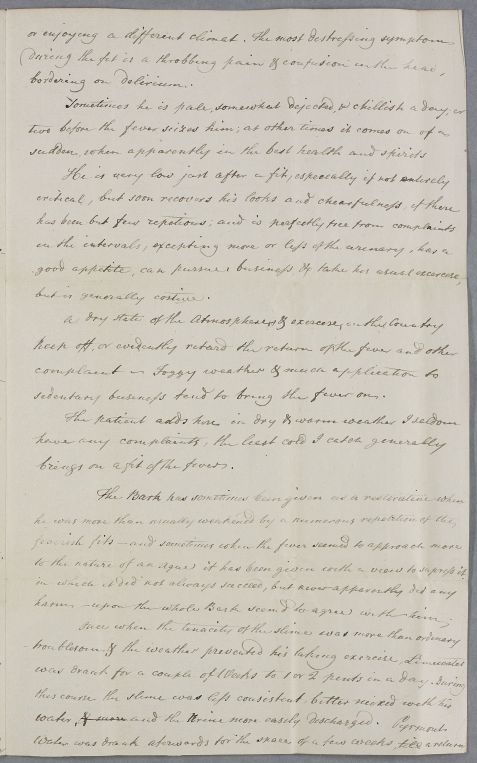 or enjoying a different climat. The most distressing symptom
During the fit is a throbbing pain & confusion in the head,
bordering on Delirium.
Sometimes he is pale, somewhat dejected, & chillish a day, or
two before the fever seizes him; at other times it comes on of a
sudden, when apparently in the best health and spirits
He is very low just after a fit, especially if not entirely
critical, but soon recovers his looks and chearfulness, if there
has been but few repetions; and is perfectly free from complaints
in the intervals, excepting more or less of the arenary, has a
good appetite, can pursue business & take his usual exercise,
but is generally costive.
A dry state of the Atmosphere, & exercise in the Country
keep off, or evidently retard the return of the fever and other
complaint Foggy weather & much application to
sedentary business tend to bring the fever on.
The patient adds here in dry & warm weather I seldom
have any complaints, the least cold I catch generally
brings on a fit of the fever.
The Bark has sometimes been given as a restorative when
he was more than usually weakened by a numerous repetition of the
feverish fits - and sometimes when the fever seemed to approach more
to the nature of an ague it has been given with a view to supress it,
in which it did not always succeed, but never apparently did any
harm - upon the whole Bark seem'd to agree with him;
Once when the tenacity of the slime was more than ordinary
troublesome & the weather prevented his taking exercise, Limewater
was drank for a couple of Weeks to 1 or 2 pints in a day. During
this course the slime was less consistent, better mixed with his
water, & more and the Urine more easily discharged. Pyrmont
Water was drank aftewards for the space of a few weeks, a return